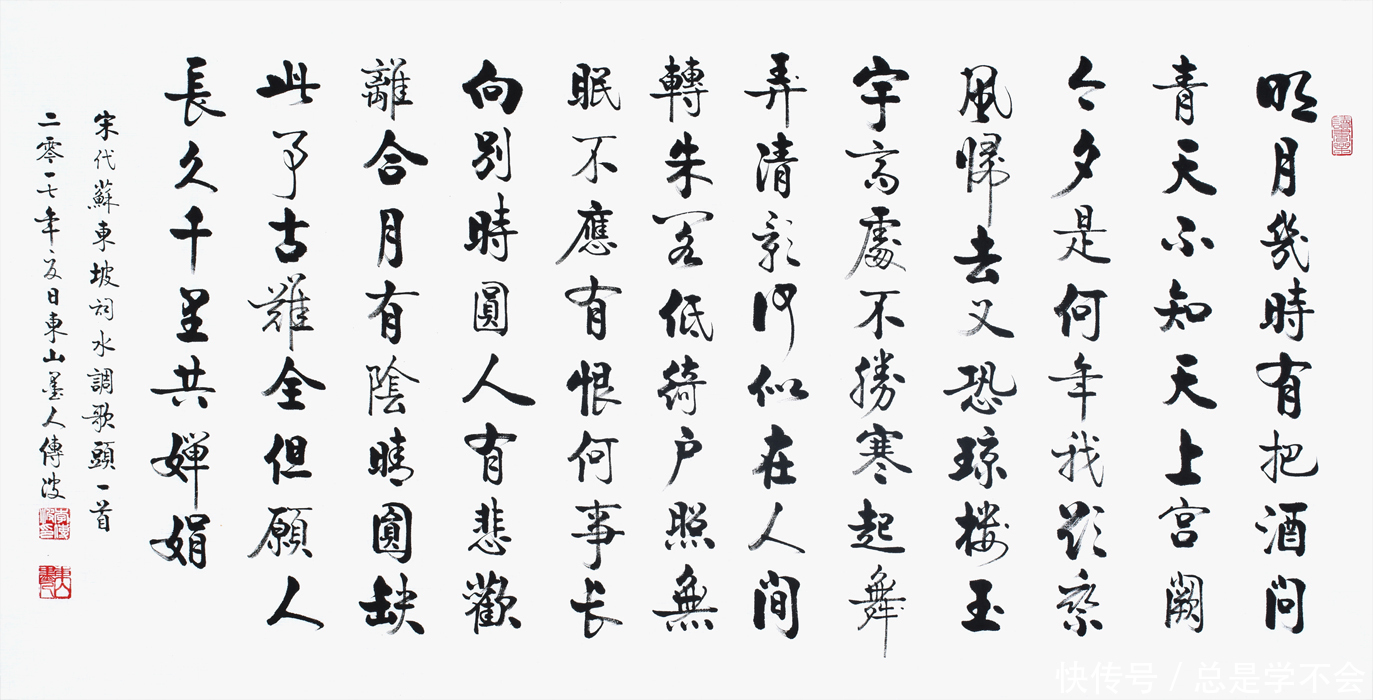 明月幾時有把酒問
青天不知天上宮闕
今夕是何年我欲乘
風歸去又恐琼楼玉
宇高處不勝寒起舞
弄清影何似在人間
轉朱閣低綺户照無
眠不應有恨何事长
向別時圓人有悲歡
離合月有陰晴圓缺
此事古難全但願人
長久千里共嬋娟
宋代蘇東坡詞水調歌頭一首
二零一七年夏日東山墨人傳波
快传号 / 总是学不会